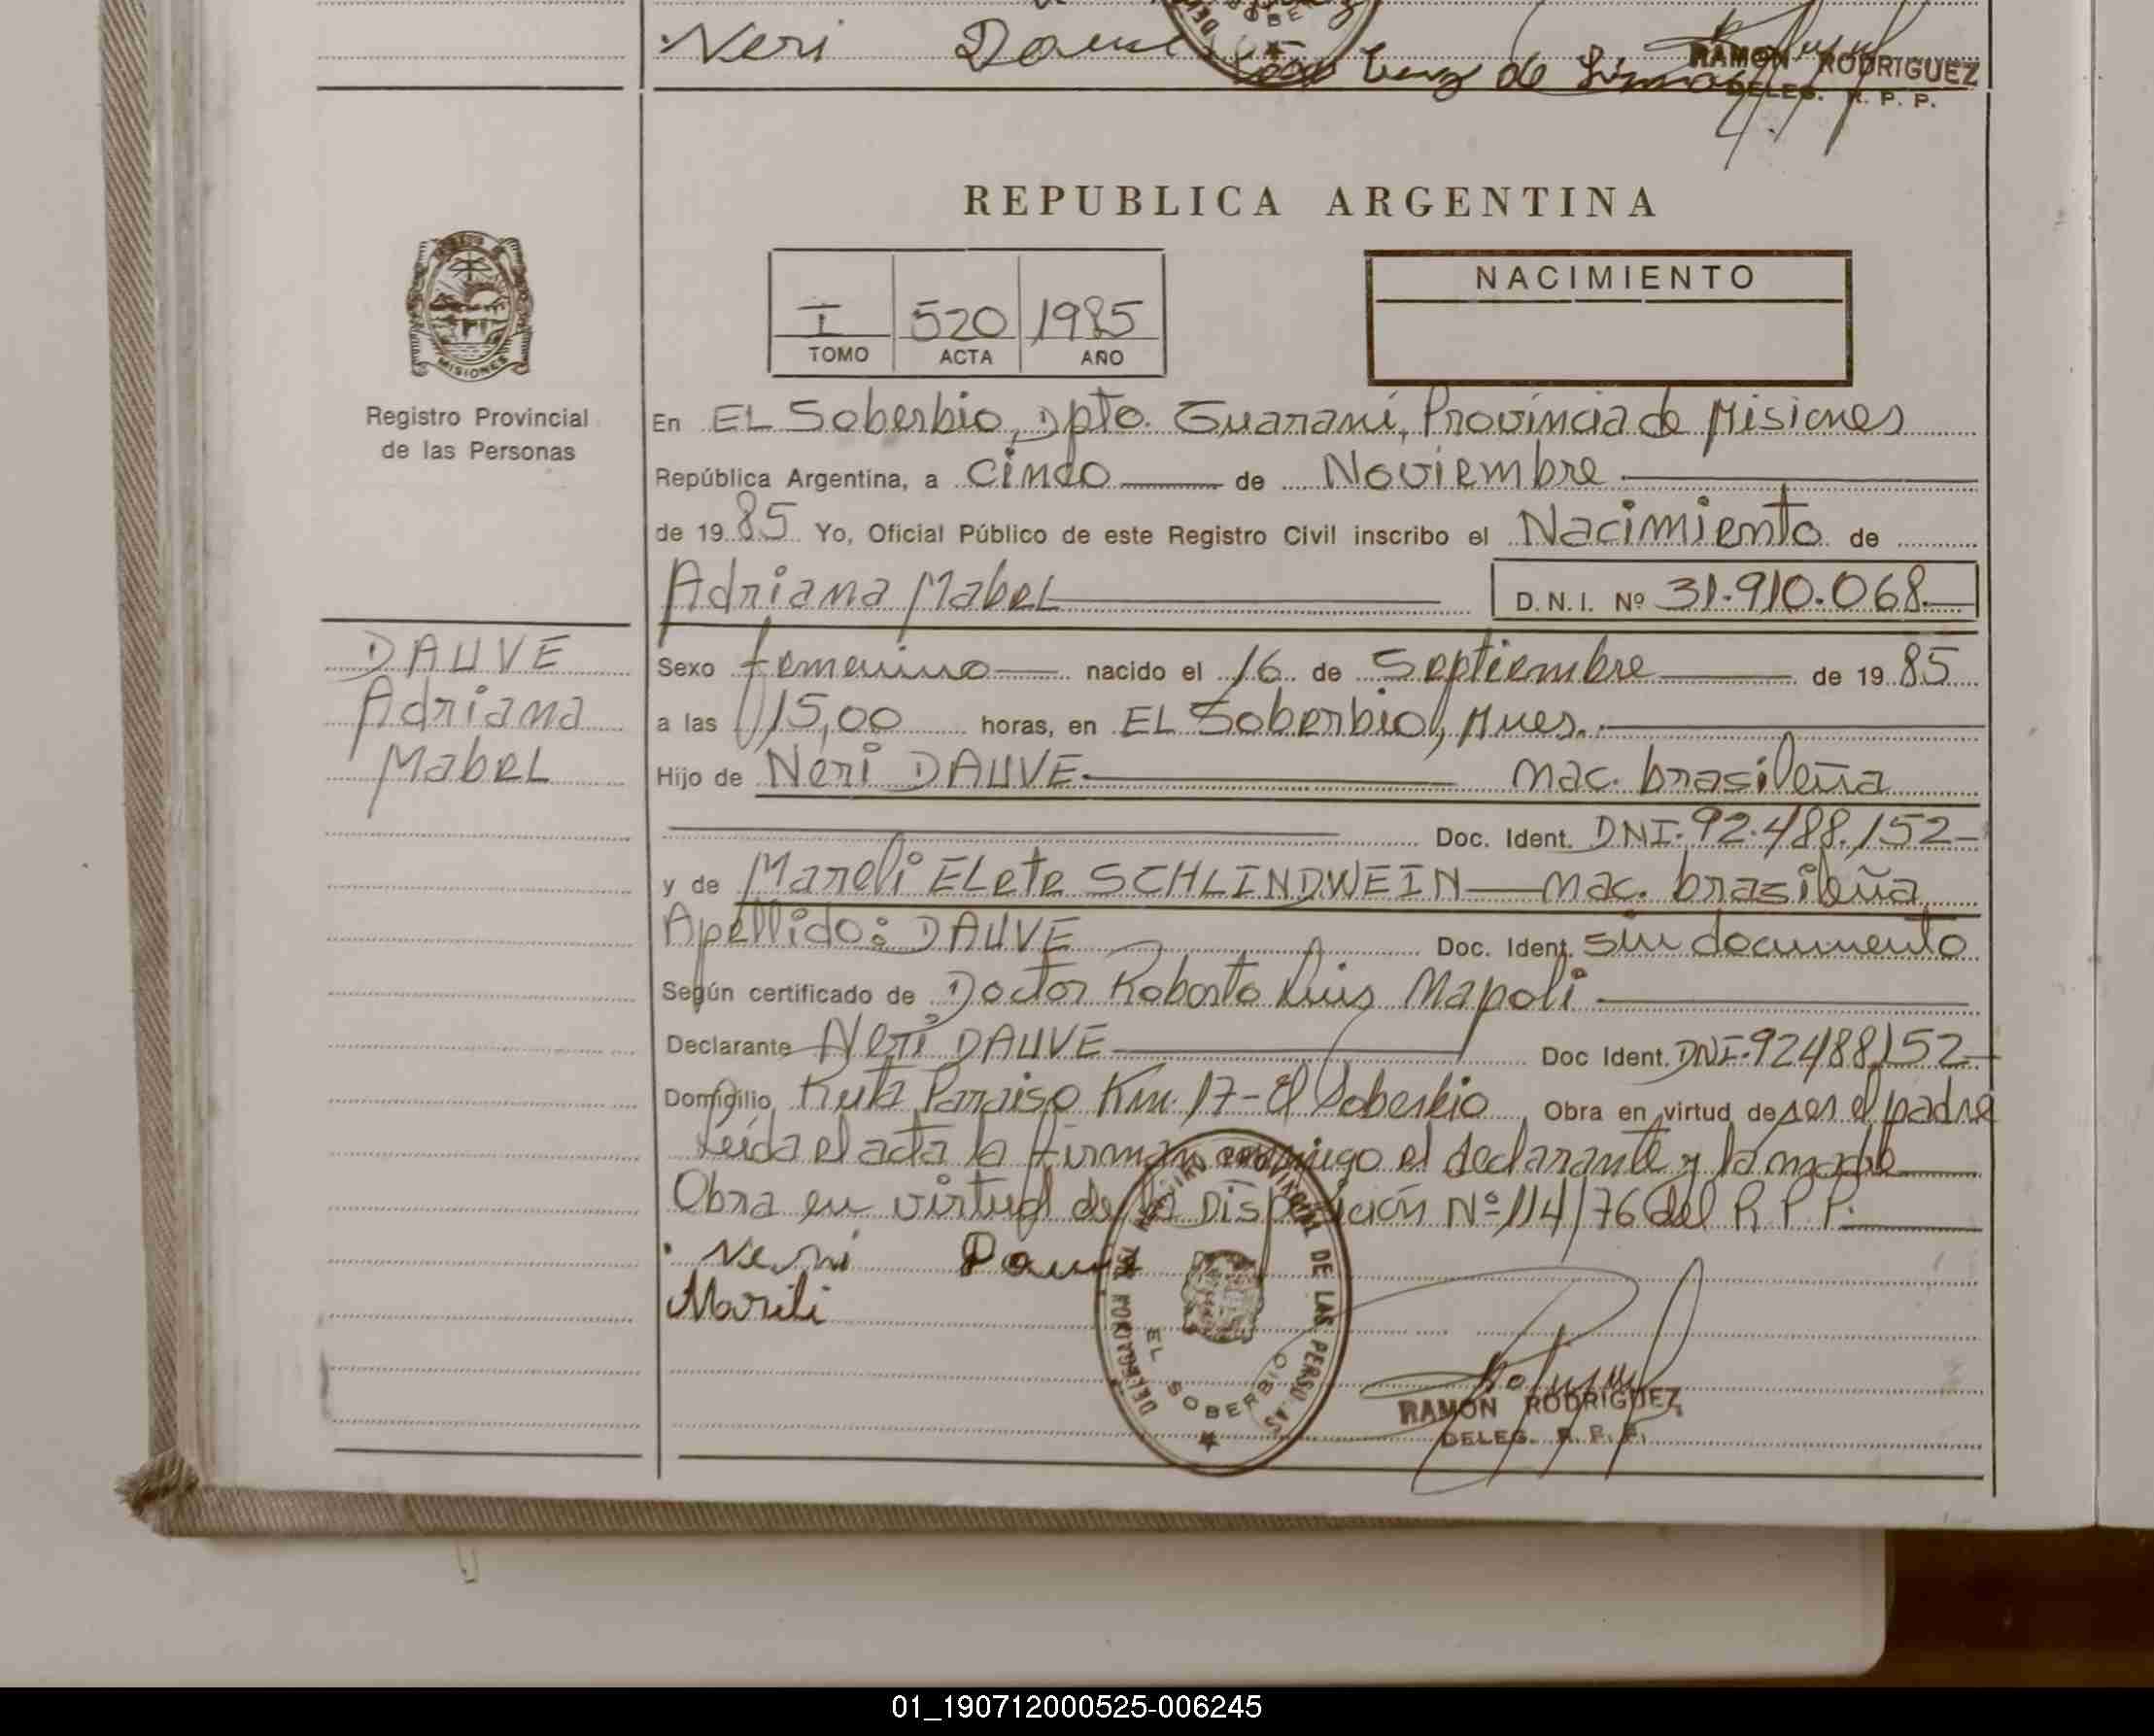 Neri Dauve
Luz de Lima
RAMON RODRIGUEZ
DELEG. R. P. P.
REPUBLICA ARGENTINA
I 520 1985
TOMO ACTA AÑO
NACIMIENTO
MISIONES
Registro Provincial
de las Personas
En EL Soberbio, Dpto. Guaraní, Provincia de Misiones
República Argentina, a cinco de Noviembre
de 19 85 Yo, Oficial Público de este Registro Civil inscribo el Nacimiento de
Adriana Mabel D.N.I. Nº 31.910.068
DAUVE
Adriana
Mabel
Sexo femenino nacido el 16 de Septiembre de 19 85
a las 15,00 horas, en EL Soberbio, Mnes.
Hijo de Neri DAUVE nac. brasileña
Doc. Ident. DNI. 92.488.152
y de Mareli ELete SCHLINDWEIN nac. brasileña
Apellido: DAUVE Doc. Ident. sin documento
Según certificado de Doctor Roberto Luis Napoli
Declarante Neri DAUVE Doc Ident. DNI. 92488152
Domicilio Ruta Paraiso Km. 17 - El Soberbio Obra en virtud de ser el padre
Leída el acta la firman conmigo el declarante y la madre
Obra en virtud de la Disposición Nº 114/76 del R.P.P.
Nerri Dauve
Marili
REGISTRO PROVINCIAL DE LAS PERSONAS
EL SOBERBIO
RAMON RODRIGUEZ
DELEG. R. P. P.
01_190712000525-006245